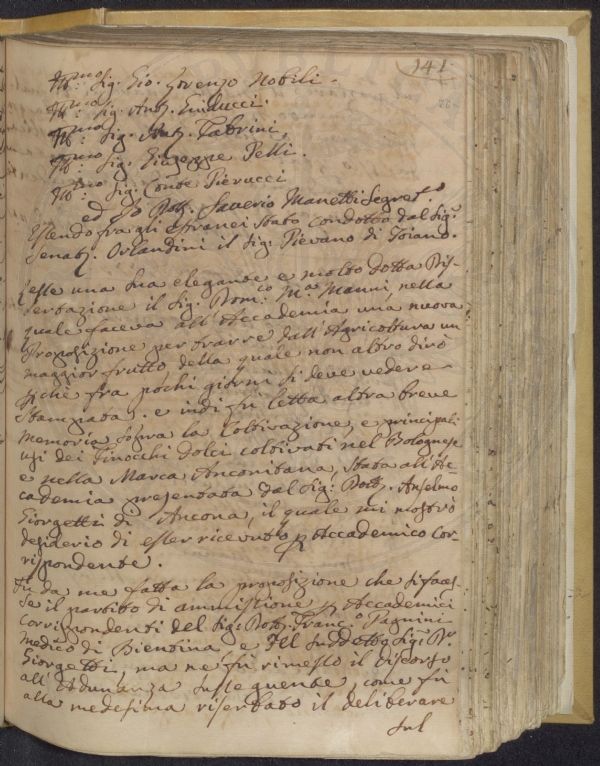 141
Ill:mo Sig: Gio: Lorenzo Nobili.
Ill:mo Sig: Ant:
Ill:mo Sig: Ant: Fabrini,
Ill:mo Sig: Giuseppe Pelli.
Ill:mo Sig: Conte Pierucci
ed Io Dott: Saverio Manetti Segret:o
Essendo fra gli estranei stato condotto dal Sig:
Senat: Orlandini il Sig: Pievano di Toiano.
Lesse una sua elegante e molto dotta Dis-
sertazione il Sig: Dom:co M:a Manni, nella
quale faceva all'Accademia una nuova
Proposizione per trarre dall'Agricoltura un
maggior frutto della quale non altro dirò
che fra pochi giorni si deve vedere
stampata. e indi fù letta altra breve
memoria sopra la Coltivazione, e principali
usi dei Finocchi dolci coltivati nel Bolognese
e nella Marca Anconitana, stata all'Ac-
cademia presentata dal Sig: Dott: Anselmo
Giorgetti di Ancona, il quale mi mostrò
desiderio di esser ricevuto p Accademico Cor-
rispondente.
Fù da me fatta la proposizione che si faces-
se il partito di ammissione p Accademici
Corrispondenti del Sig: Dott: Franc:o Pagnini
Medico di Bientina e del suddetto Sig: D:r
Giorgetti, ma ne fù rimesso il discorso
all'Adunanza susseguente, come fù
alla medesima riserbato il deliberare
sul